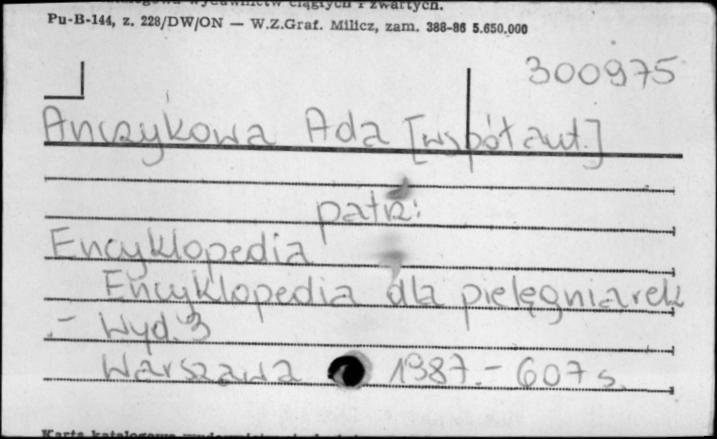 wydawnictw ciągłych i zwartych.
Pu-B-144, z. 228/DW/ON — W.Z.Graf. Milicz, zam. 388-86 5.650.000
300975
Anczykowa Ada [współaut.]
patrz:
Encyklopedia
Encyklopedia dla pielęgniarek
.- Wyd. 3
Warszawa 1987.- 607 s.
Karta katalogowa